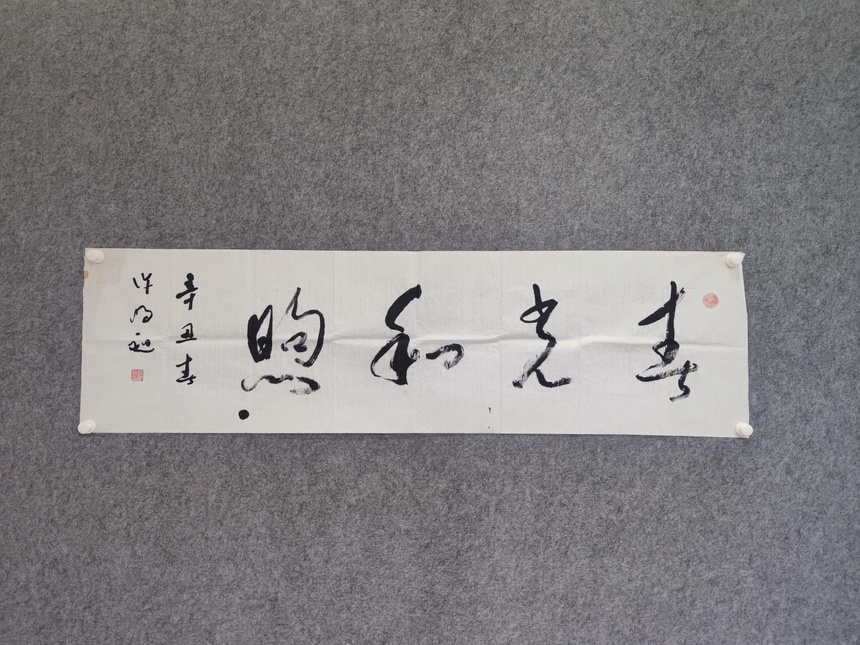 春光和煦
辛丑春
许